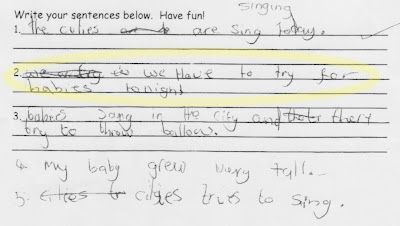 Write your sentences below. Have fun!
singing
1. the cuties are sing today.
2. we have to try for
babies tonight
3. babies song in the city and they
try to throw ballow.
4. My baby grew very tall.
5. cities trys to sing.